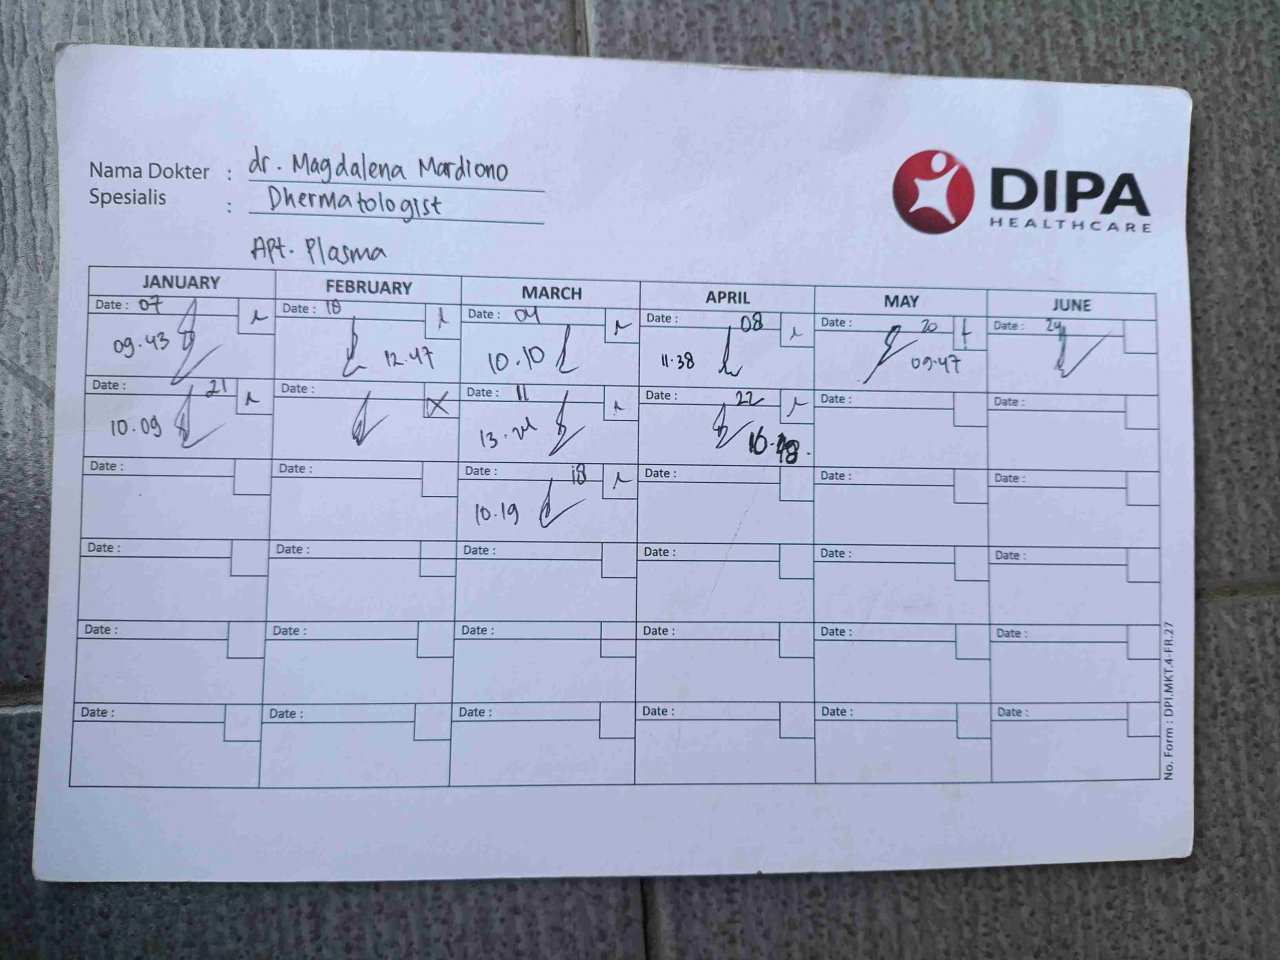 Nama Dokter : dr. Magdalena Mardiono
Spesialis : Dhermatologist
Apt. Plasma
DIPA
HEALTHCARE
JANUARY FEBRUARY MARCH APRIL MAY JUNE
Date : 07 Date : 18 Date : 04 Date : 08 Date : 20 Date : 24
09.43 12.47 10.10 11.38 09.47
Date : 21 Date : Date : 11 Date : 22 Date : Date :
10.09 13.24
Date : Date : Date : 18 Date : Date : Date :
10.19
Date : Date : Date : Date : Date : Date :
Date : Date : Date : Date : Date : Date :
Date : Date : Date : Date : Date : Date :
No. Form : DPI.MKT.4-FR.27